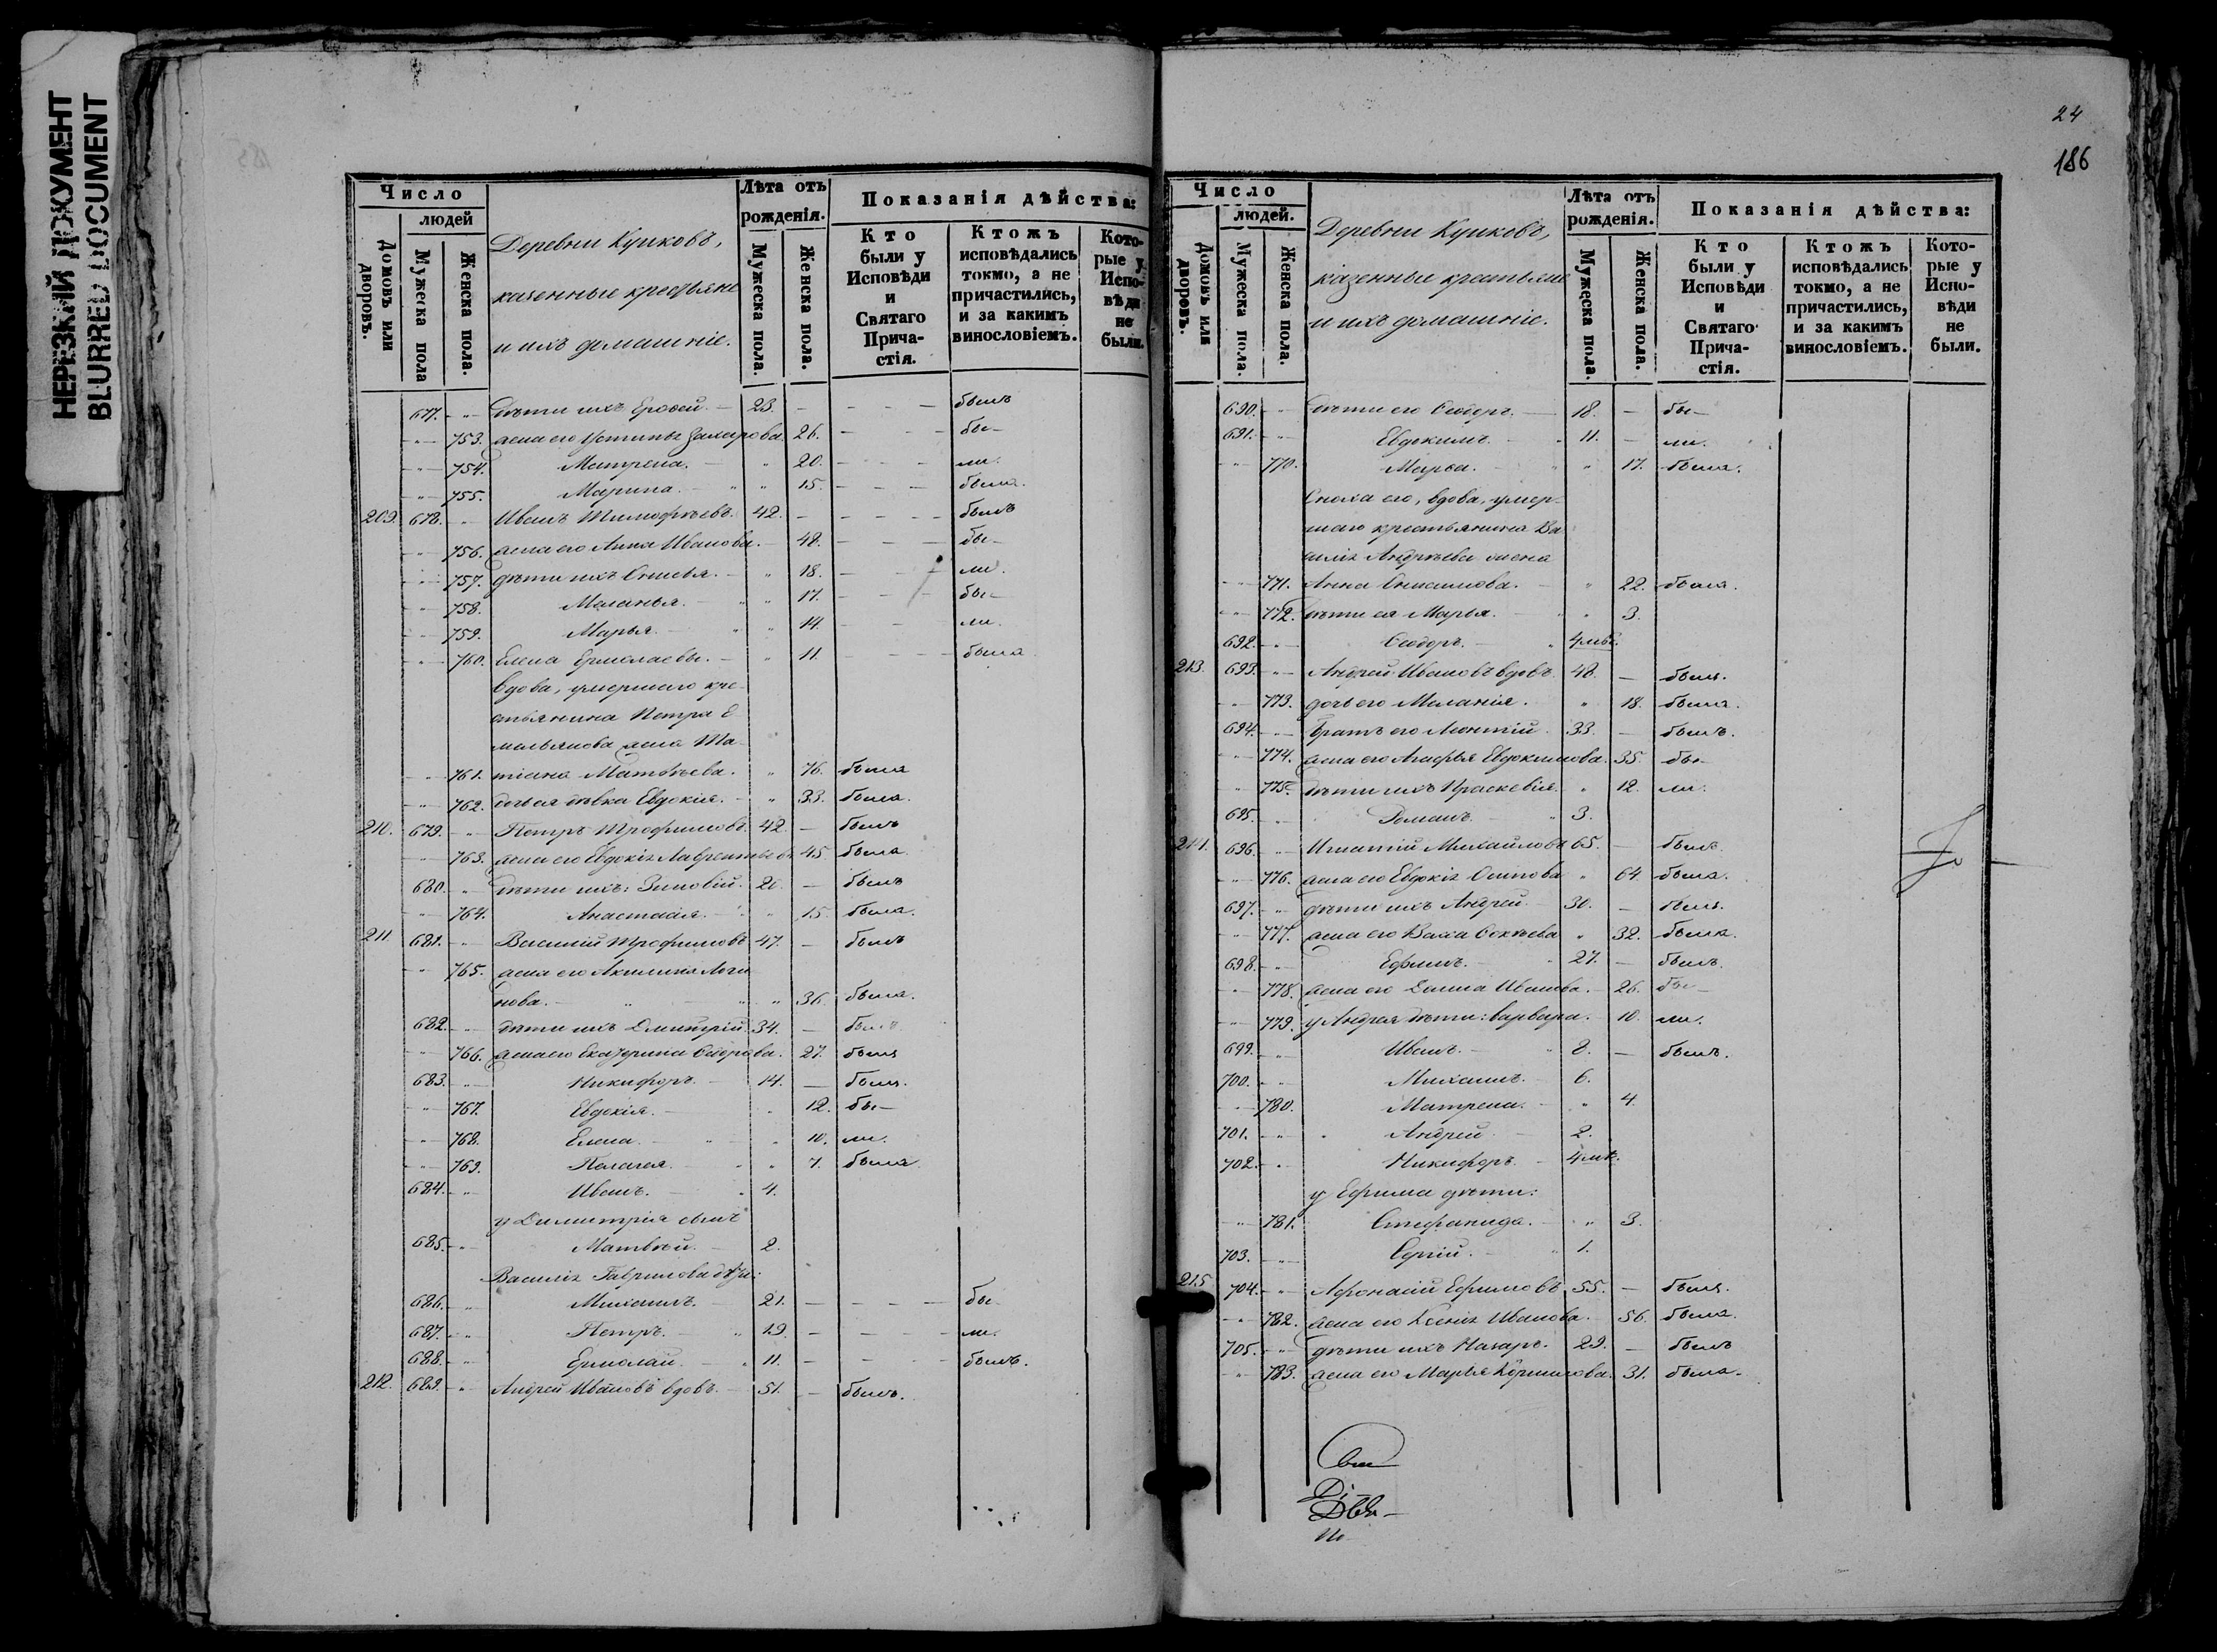 НЕРЕЗКИЙ ДОКУМЕНТ
BLURRED DOCUMENT
Число
людей
Домовъ или дворовъ.
Мужеска пола
Женска пола.
Деревни Кушковъ,
казенные крестьяне
и ихъ домашніе.
Лѣта отъ
рожденія.
Мужеска пола.
Женска пола.
Показанія дѣйства:
Кто были у Исповѣди и Святаго Прича-стія.
Ктожъ исповѣдались токмо, а не причастились, и за какимъ винословіемъ.
Кото-рые у Испо-вѣди не были.
677. дѣти ихъ Ерофей. 23. былъ
753. жена его Устинья Захарова. 26. бы-
754. Матрена. 20. ли.
755. Марина. 15. была.
209. 678. Иванъ Тимофѣевъ. 42. былъ
756. жена его Анна Иванова. 48. бы-
757. дѣти ихъ 18. ли.
758. Маланья. 17. бы-
759. Марья. 14. ли.
760. Елена Ермолаевы. 11. была
Вдова, умершаго кре-
стьянина Петра Е
мельянова жена Та-
761. тіана Матвѣева. 76. была
762. дочь ея дѣвка Евдокія. 33. была.
210. 679. Петръ Трофимовъ. 42. былъ
763. жена его Евдокія Лаврентьева 45. была
680. дѣти ихъ: Зиновій. 20. былъ
764. Анастасія. 15. была.
211. 681. Василій Трофимовъ 47. былъ
765. жена его Акилина Логи
нова. 36. была.
682. дѣти ихъ Димитрій. 34. былъ
766. жена его Екатерина Ѳедорова. 27. была
683. Никифоръ. 14. былъ.
767. Евдокія. 12. бы-
768. Елена. 10. ли.
769. Пелагея. 7. была.
684. Иванъ. 4.
у Димитрія сынъ
685. Матвѣй. 2.
Василія Гаврилова дѣти:
686. Михаилъ. 21. бы-
687. Петръ. 19. ли.
688. Ермолай. 11. былъ.
212. 689. Андрей Ивановъ вдовъ. 51. былъ.
24
186
Число
людей.
Домовъ или дворовъ.
Мужеска пола.
Женска пола.
Деревни Кушковъ,
казенные крестьяне
и ихъ домашніе.
Лѣта отъ
рожденія.
Мужеска пола.
Женска пола.
Показанія дѣйства:
Кто были у Исповѣди и Святаго Прича-стія.
Ктожъ исповѣдались токмо, а не причастились, и за какимъ винословіемъ.
Кото-рые у Испо-вѣди не были.
690. дѣти его Ѳеодоръ. 18. бы-
691. Евдокимъ. 11. ли.
770. Марья. 17. была.
Сноха его, вдова, умер-
шаго крестьянина Ва
силія Андрѣева жена
771. Анна Онисимова. 22. была.
772. дѣти ея Марья. 3.
692. Ѳеодоръ. 4 мѣс.
213. 693. Андрей Ивановъ вдовъ. 48. былъ.
773. дочь его Меланія. 18. была.
694. Братъ его Леонтій. 33. былъ.
774. жена его Агафья Евдокимова. 35. бы-
775. дѣти ихъ Праскевія. 12. ли.
695. Романъ. 3.
214. 696. Игнатій Михайловъ 65. былъ.
776. жена его Евдокія Осипова 64. была.
697. дѣти ихъ Андрей. 30. былъ.
777. жена его 32. была.
698. Ефимъ. 27. былъ.
778. жена его Иванова. 26. бы-
779. у Андрея дѣти: Варвара. 10. ли.
699. Иванъ. 8. былъ.
700. Михаилъ. 6.
780. Матрена. 4.
701. Андрей. 2.
702. Никифоръ. 4 мѣ.
у Ефима дѣти:
781. Стефанида. 3.
703. Сергій. 1.
215. 704. Афонасій Ефимовъ 55. былъ.
782. жена его Ксенія Иванова. 56. была.
705. дѣти ихъ Назаръ. 29. былъ
783. жена его Марья 31. была.